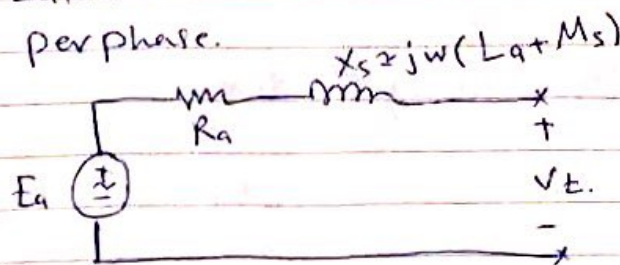 per phase.
Xs = jw(La+Ms)
Ra
+
Ea
+
-
Vt.
-